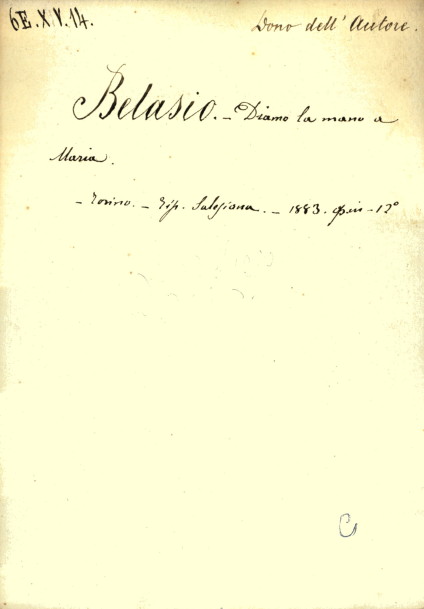 6E.XV.14.
Dono dell'Autore.
Belasio. – Diamo la mano a
Maria.
– Torino. – Tip. Salesiana. – 1883. in – 12°
C